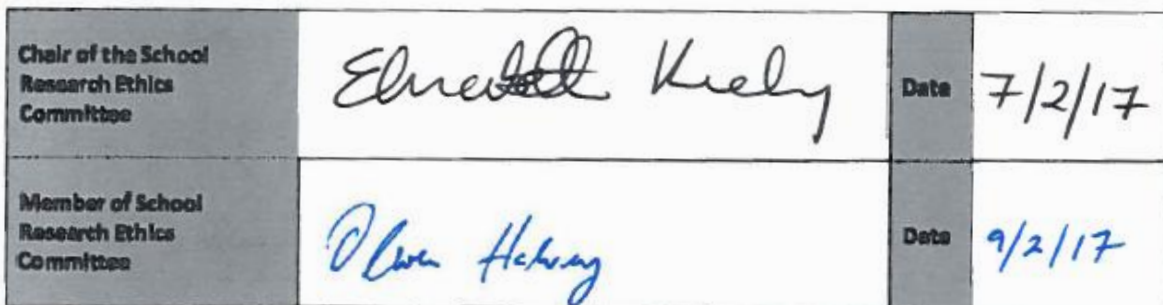 Chair of the School
Research Ethics
Committee
Elizabeth Kiely
Date
7/2/17
Member of School
Research Ethics
Committee
Date
9/2/17